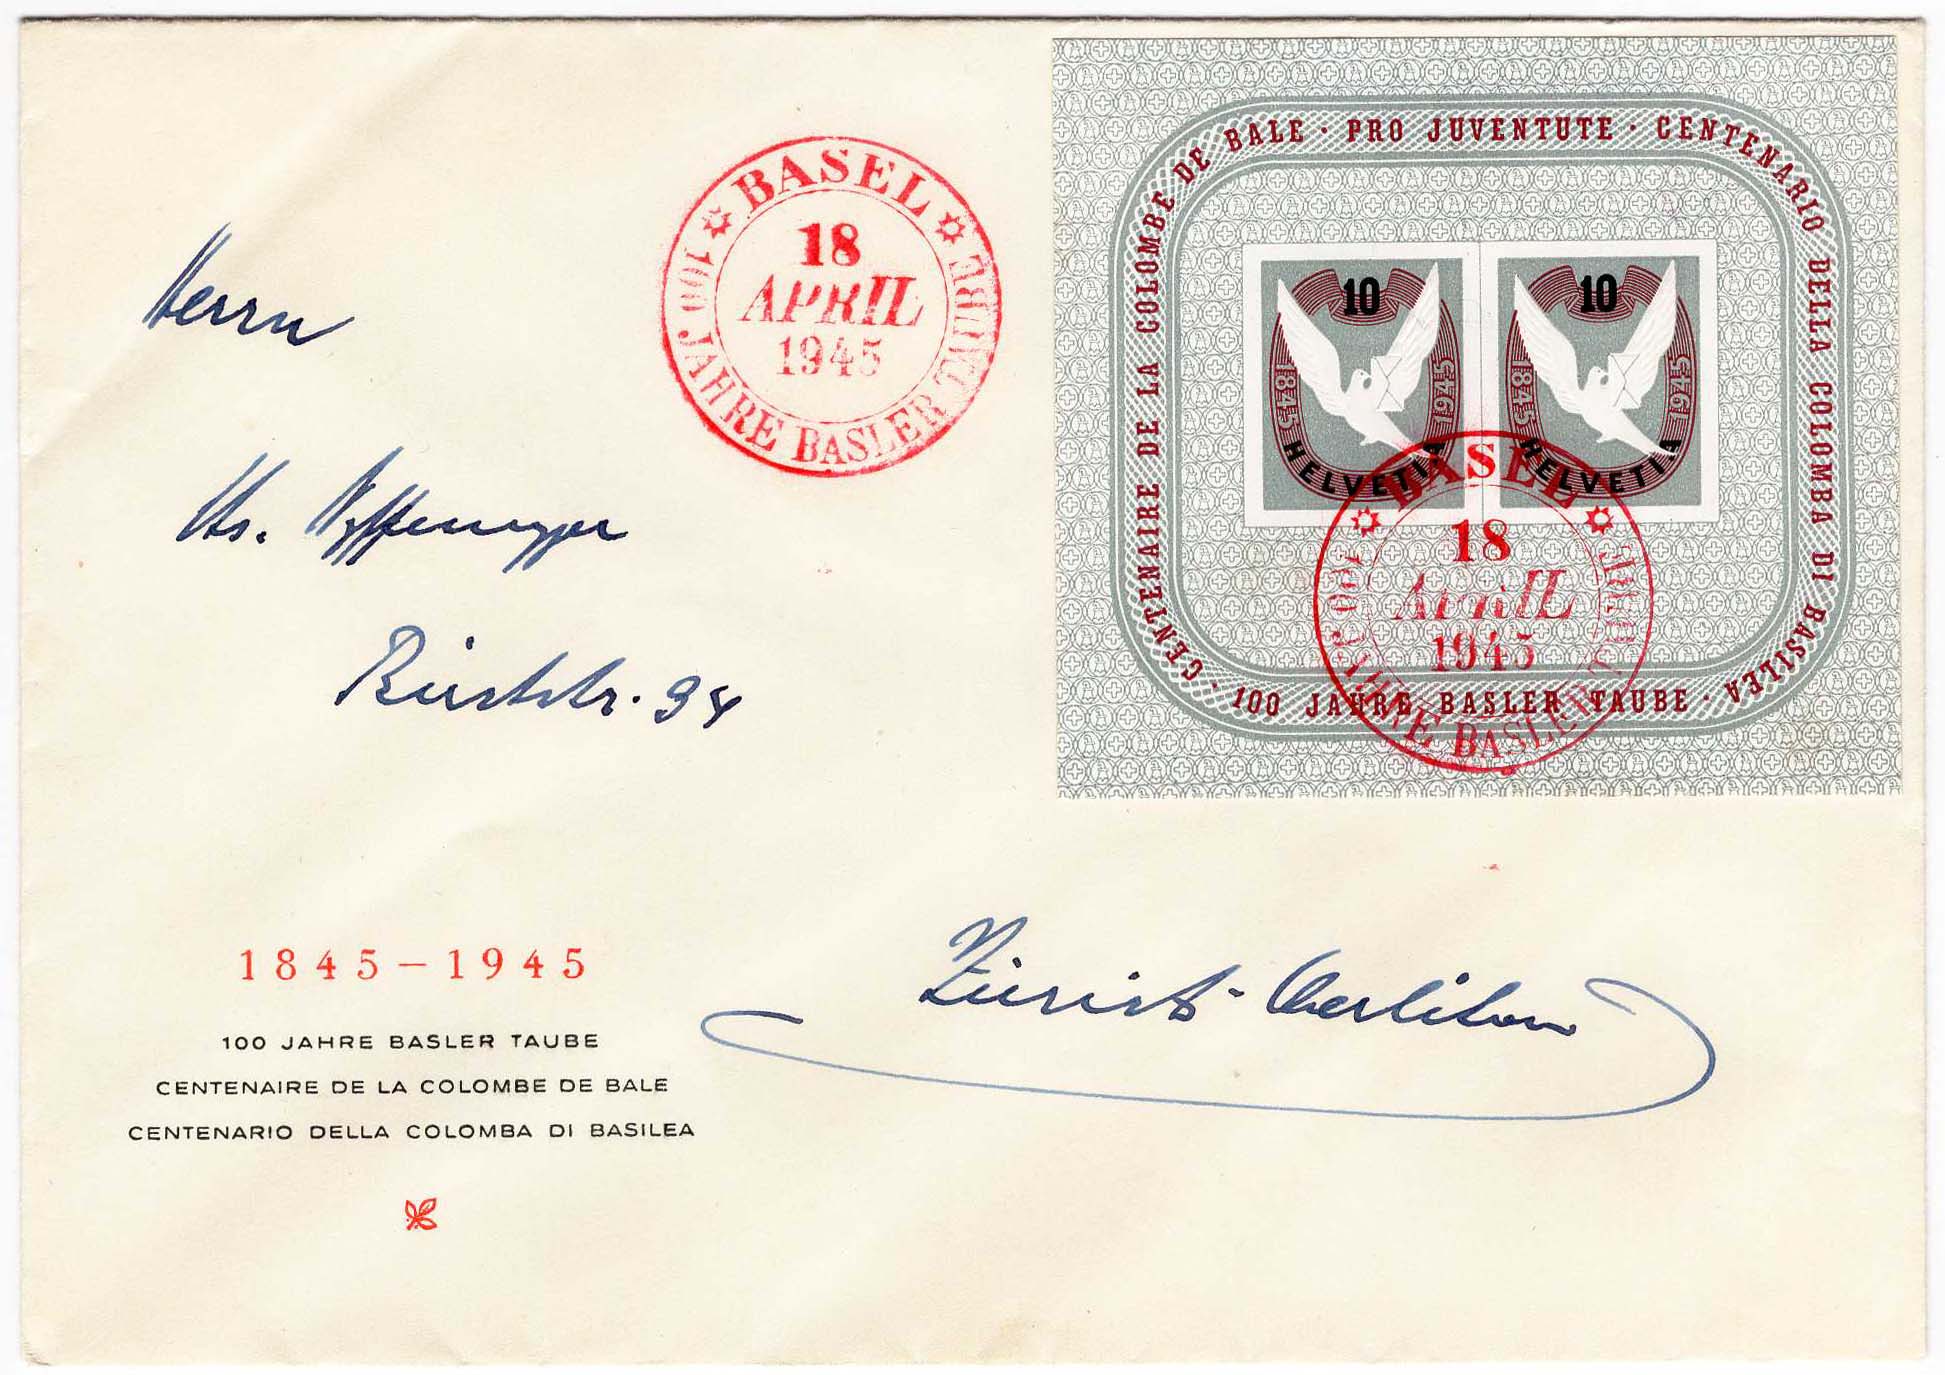 BASEL
18
APRIL
1945
100 JAHRE BASLER TAUBE
CENTENAIRE DE LA COLOMBE DE BALE · PRO JUVENTUTE · CENTENARIO DELLA COLOMBA DI BASILEA · 100 JAHRE BASLER TAUBE ·
10
1845 1945
HELVETIA
10
1845 1945
HELVETIA
BASEL
18
APRIL
1945
100 JAHRE BASLER TAUBE
Herrn
Hs. Nyffenegger
94
Zürich-Oerlikon
1845-1945
100 JAHRE BASLER TAUBE
CENTENAIRE DE LA COLOMBE DE BALE
CENTENARIO DELLA COLOMBA DI BASILEA